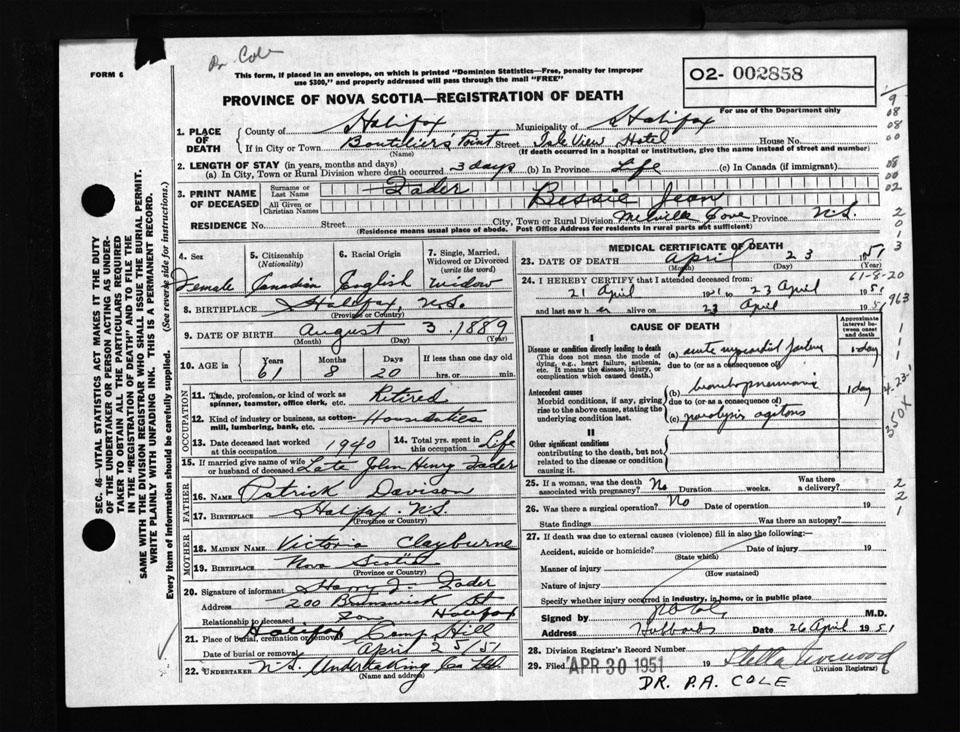 Dr. Cole
FORM 6
This form, if placed in an envelope, on which is printed "Dominion Statistics—Free, penalty for improper
use $300," and properly addressed will pass through the mail "FREE"
O2- 002858
PROVINCE OF NOVA SCOTIA—REGISTRATION OF DEATH
For use of the Department only
1. PLACE OF DEATH
County of Halifax Municipality of Halifax
If in City or Town Boutilier's Point Street Isle View Hotel House No.
(Name) (If death occurred in a hospital or institution, give the name instead of street and number)
2. LENGTH OF STAY (in years, months and days)
(a) In City, Town or Rural Division where death occurred 3 days (b) In Province Life (c) In Canada (if immigrant)
3. PRINT NAME OF DECEASED
Surname or Last Name Fader
All Given or Christian Names Bessie Jean
RESIDENCE No. Street City, Town or Rural Division Melville Cove Province N.S.
(Residence means usual place of abode. Post Office Address for residents in rural parts not sufficient)
4. Sex 5. Citizenship (Nationality) 6. Racial Origin 7. Single, Married, Widowed or Divorced (write the word)
Female Canadian English Widow
8. BIRTHPLACE Halifax N.S.
(Province or Country)
9. DATE OF BIRTH August 3 1889
(Month) (Day) (Year)
10. AGE in Years Months Days If less than one day old
61 8 20 hrs. or min.
OCCUPATION
11. Trade, profession, or kind of work as spinner, teamster, office clerk, etc. Retired
12. Kind of industry or business, as cotton-mill, lumbering, bank, etc. House duties
13. Date deceased last worked at this occupation 1940 14. Total yrs. spent in this occupation Life
15. If married give name of wife or husband of deceased Late John Henry Fader
FATHER
16. NAME Patrick Davison
17. BIRTHPLACE Halifax N.S.
(Province or Country)
MOTHER
18. MAIDEN NAME Victoria Clayburne
19. BIRTHPLACE Nova Scotia
(Province or Country)
20. Signature of informant Harry J. Fader
Address 200 Brunswick St
Relationship to deceased Son Halifax
21. Place of burial, cremation or removal Halifax Camp Hill
Date of burial or removal April 25/51
22. UNDERTAKER N.S. Undertaking Co Ltd
(Name and address)
MEDICAL CERTIFICATE OF DEATH
23. DATE OF DEATH April 23 1951
(Month) (Day) (Year)
61-8-20
24. I HEREBY CERTIFY that I attended deceased from:
21 April 1951 to 23 April 1951
and last saw her alive on 23 April 1951
CAUSE OF DEATH
Approximate interval between onset and death
I
Disease or condition directly leading to death
(This does not mean the mode of dying, e.g., heart failure, asthenia, etc. It means the disease, injury, or complication which caused death.)
(a) acute myocardial failure 1 day
due to (or as a consequence of)
Antecedent causes
Morbid conditions, if any, giving rise to the above cause, stating the underlying condition last.
(b) bronchopneumonia 1 day
due to (or as a consequence of)
(c) paralysis agitans
II
Other significant conditions
contributing to the death, but not related to the disease or condition causing it.
25. If a woman, was the death associated with pregnancy? No Duration weeks. Was there a delivery?
26. Was there a surgical operation? No Date of operation 19
State findings Was there an autopsy?
27. If death was due to external causes (violence) fill in also the following:—
Accident, suicide or homicide? Date of injury 19
(State which)
Manner of injury
(How sustained)
Nature of injury
Specify whether injury occurred in industry, in home, or in public place
Signed by P A Cole M.D.
Address Hubbards Date 26 April 1951
28. Division Registrar's Record Number
29. Filed APR 30 1951 19 Stella
(Division Registrar)
DR. P.A. COLE
SEC. 46—VITAL STATISTICS ACT MAKES IT THE DUTY
OF THE UNDERTAKER OR PERSON ACTING AS UNDER-
TAKER TO OBTAIN ALL THE PARTICULARS REQUIRED
IN THE "REGISTRATION OF DEATH" AND TO FILE THE
SAME WITH THE DIVISION REGISTRAR WHO SHALL ISSUE THE BURIAL PERMIT.
WRITE PLAINLY WITH UNFADING INK. THIS IS A PERMANENT RECORD.
Every item of Information should be carefully supplied. (See reverse side for instructions.)
9
08
08
00
08
00
02
2
0
1
3
963
1
1
1
4-23-1
350X
2
2
1